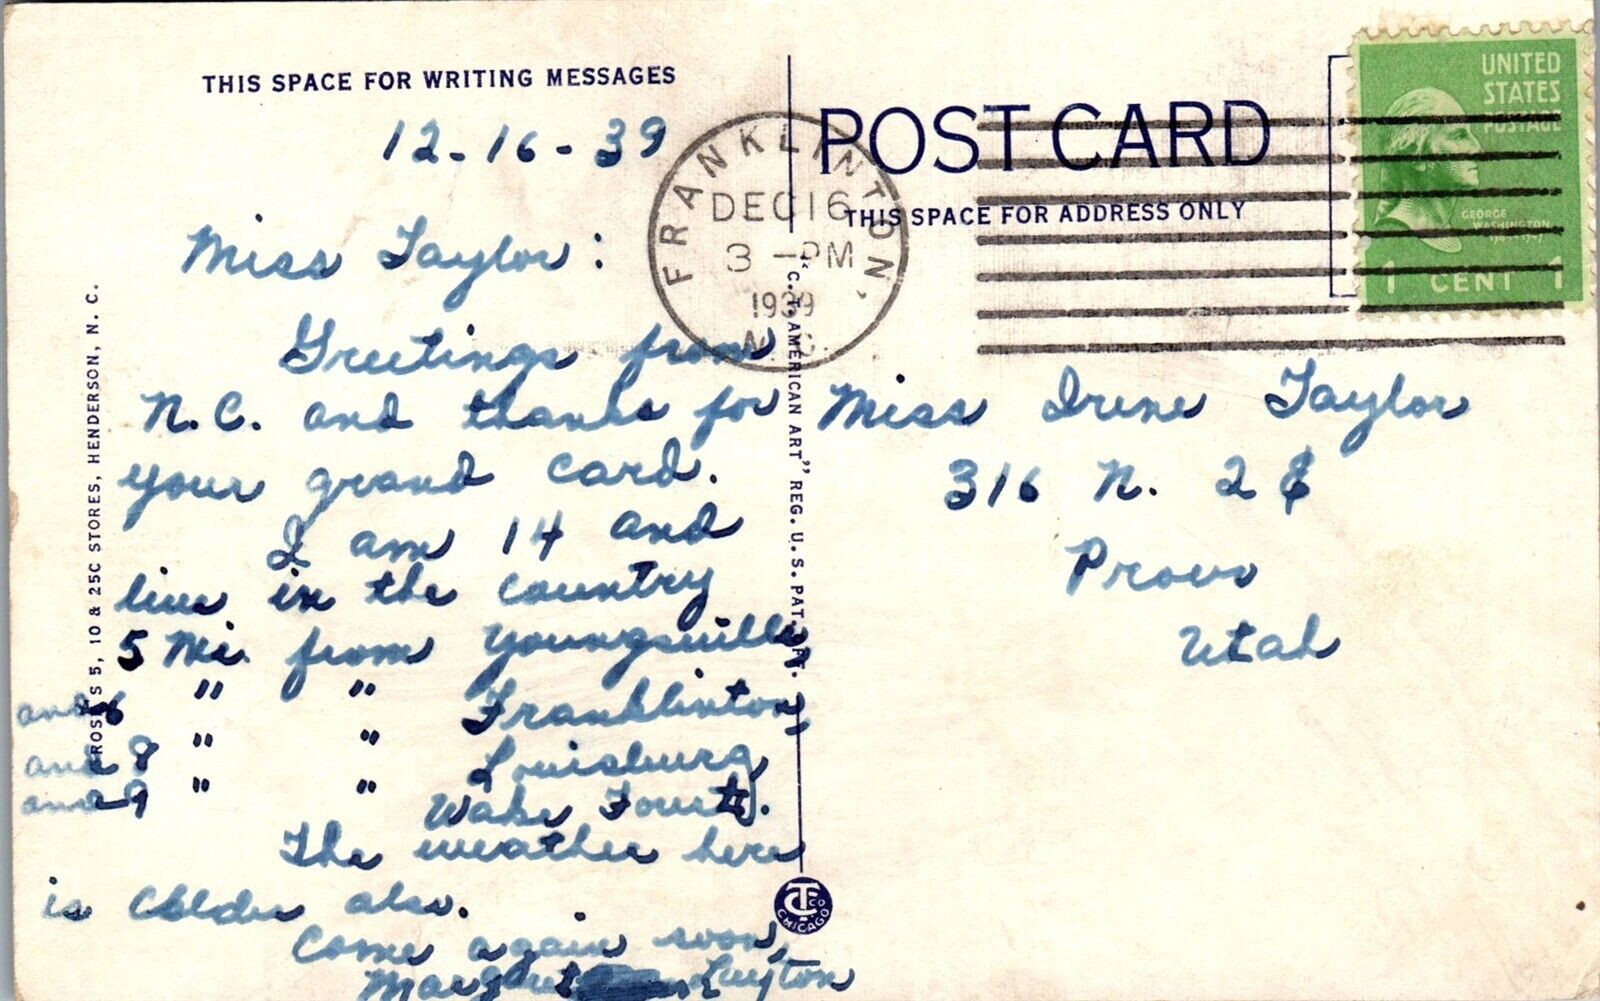 THIS SPACE FOR WRITING MESSAGES
12-16-39
Miss Taylor:
Greetings from
N.C. and thanks for
your grand card.
I am 14 and
live in the country
5 Mi. from Youngsville,
and 6 " " Franklinton,
and 8 " " Louisburg,
and 9 " " Wake Forest.
The weather here
is colder also.
Come again soon,
Margaret Layton
ROSE'S 5, 10 & 25C STORES, HENDERSON, N. C.
"C. T. AMERICAN ART" REG. U. S. PAT. OFF.
CT CO CHICAGO
FRANKLINTON,
DEC 16
3 -PM
1939
N.C.
POST CARD
THIS SPACE FOR ADDRESS ONLY
UNITED
STATES
POSTAGE
GEORGE
WASHINGTON
1789-1797
1 CENT 1
Miss Irene Taylor
316 N. 2 E
Provo
Utah